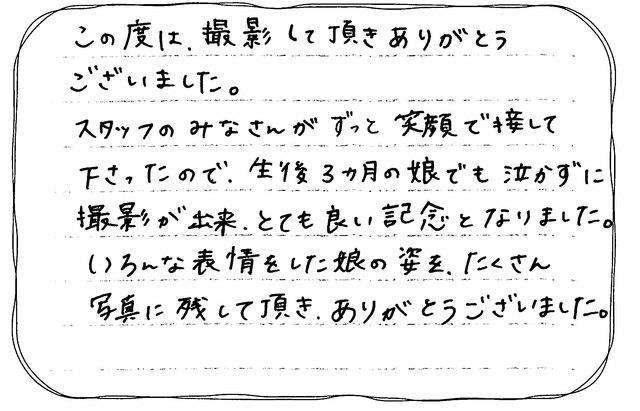 この度は、撮影して頂きありがとう
ございました。
スタッフのみなさんがずっと笑顔で接して
下さったので、生後3カ月の娘でも泣かずに
撮影が出来、とても良い記念となりました。
いろんな表情をした娘の姿を、たくさん
写真に残して頂き、ありがとうございました。